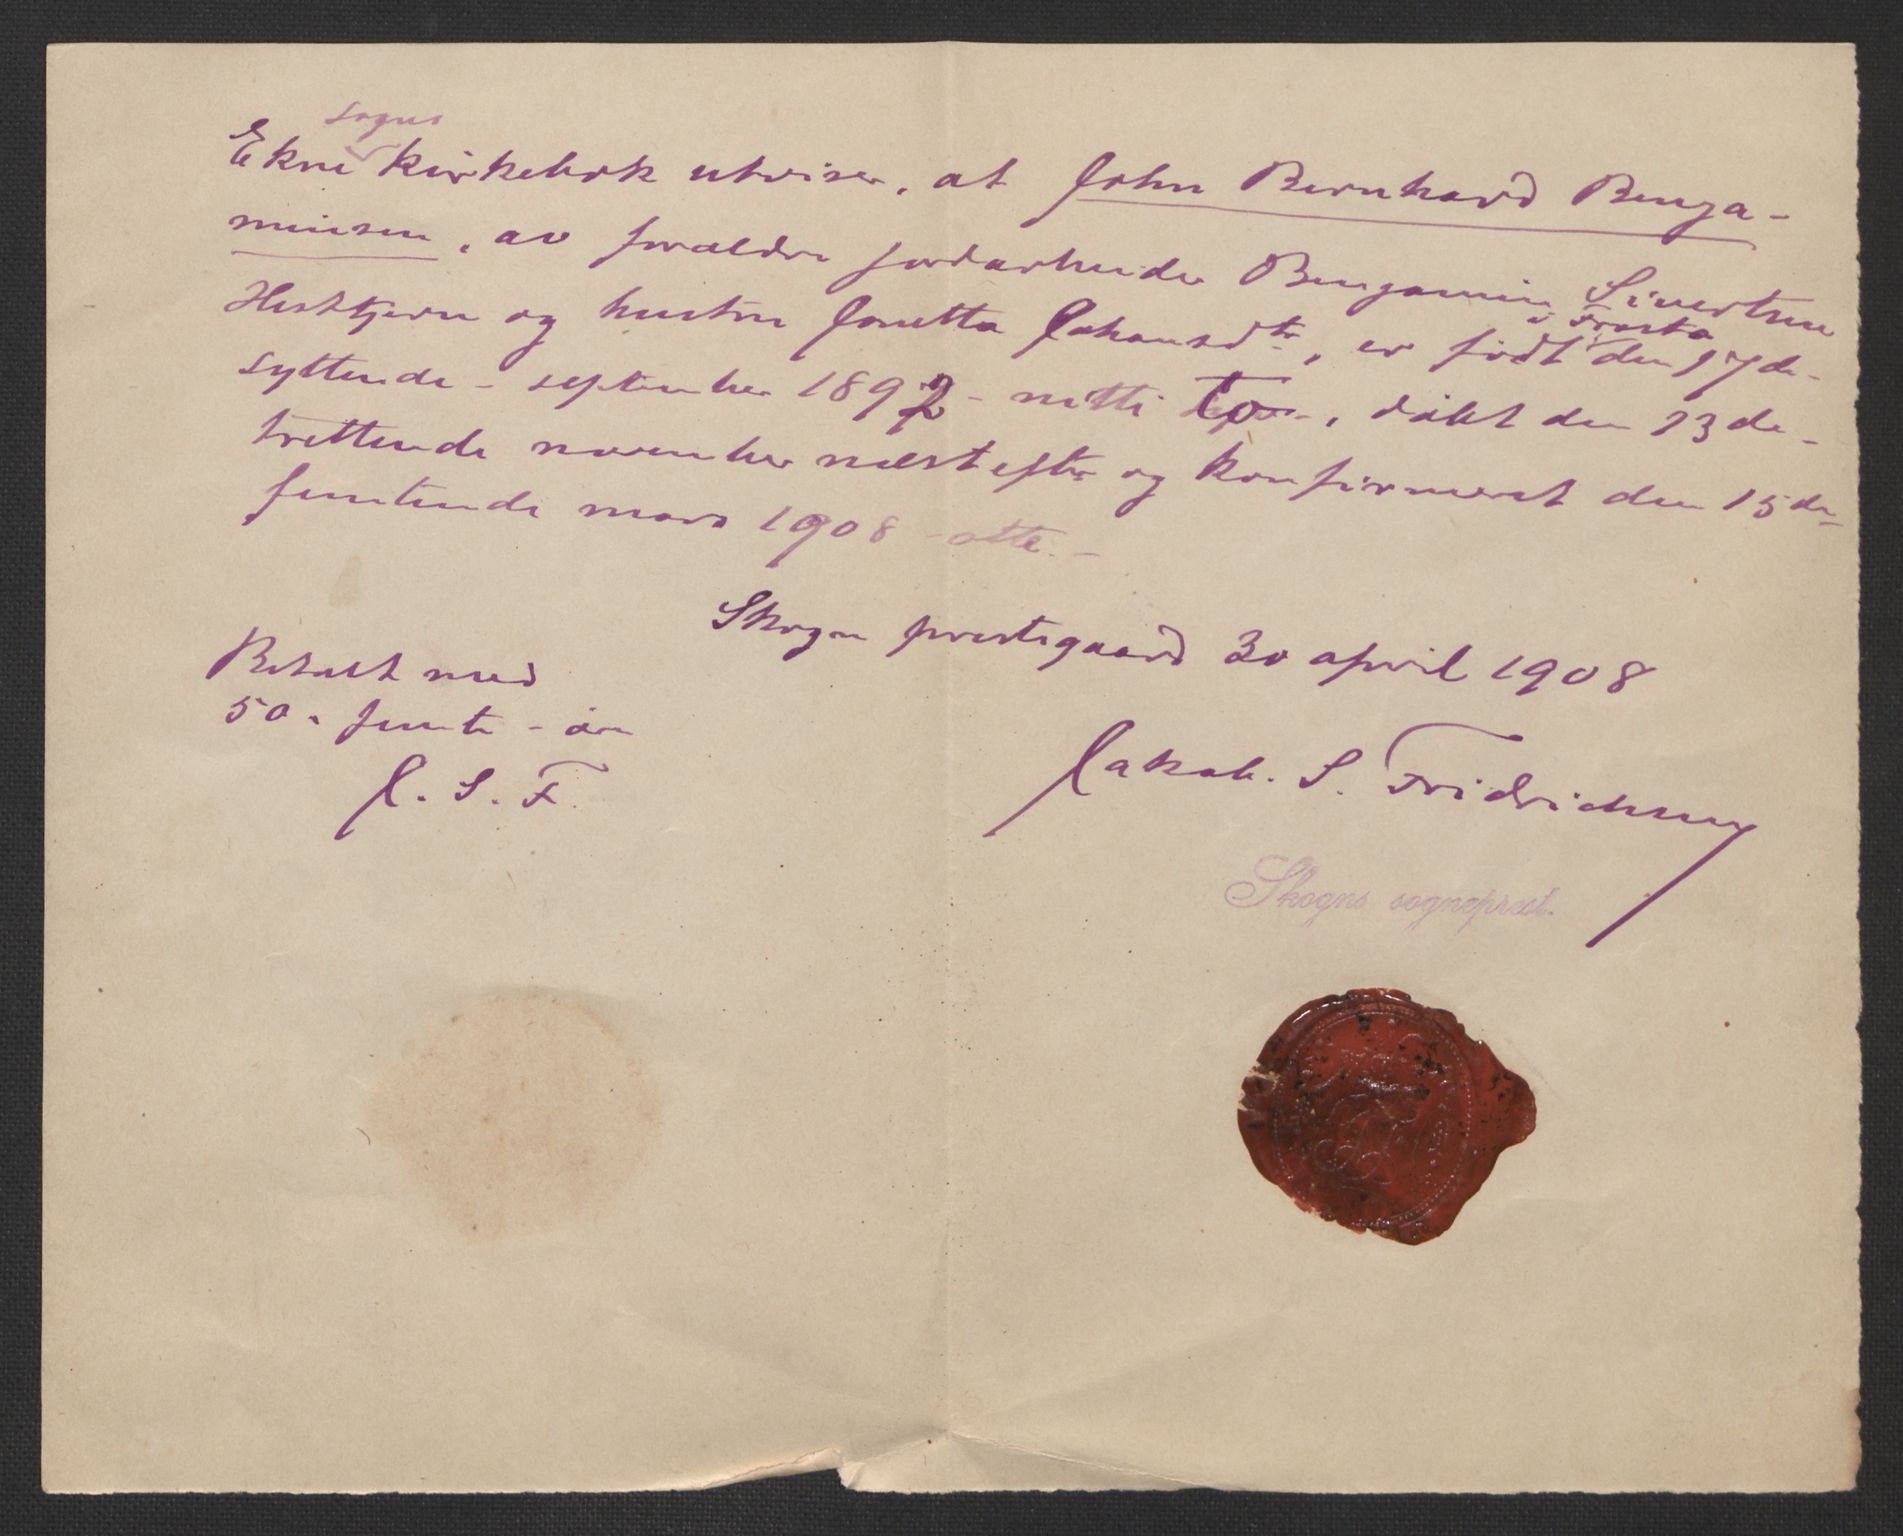 sogns
Ekne kirkebok utviser, at John Bernhard Benja-
minsen, av forældre jordarbeider Benjamin Sivertsen
Hestkjern og hustru Jonetta Johansdtr, er født i Frosta den 17de -
syttende - september 1892 - nitti to -, døbt den 13de -
trettende november næstefter og konfirmeret den 15de -
femtende mars 1908 - otte. -
Skogn prestegaard 30 april 1908
Betalt med
50 - femti - øre
J. S. F.
Jakob. S. Fridrichsen
Skogns sogneprest.